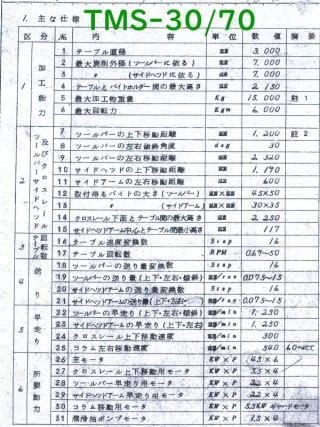 TMS-30/70
1. 主な仕様
区分 No 内容 単位 数値 摘要
1 加工能力
1 テーブル直径 mm 3,000
2 最大施削外径 (ツールバーに依る) mm 7,000
3 〃 (サイドヘッドに依る) mm 7,000
4 テーブルとバイトホルダー間の最大高さ mm 2,130
5 最大加工物重量 Kg 15,000 註1
6 最大回転力 Kgm 6,000
2 ツールバーサイドヘッド及びクロスレール
7 ツールバーの上下移動距離 mm 1,200 註2
8 ツールバーの左右傾斜角度 deg 30
9 ツールバーの左右移動距離 mm 2,320
10 サイドヘッドの上下移動距離 mm 1,190
11 サイドアームの左右移動距離 mm 600
12 取付得るバイトの大きさ (ツールバー) mm×mm 45×50
13 〃 (サイドアーム) mm×mm 30×35
14 クロスレール下面とテーブル間の最大高さ mm 2,250
15 サイドヘッドアーム中心とテーブル間最小高さ mm 117
3 テーブル回転数
16 テーブル速度変換数 Step 16
17 テーブル回転数 RPM 0.69~50
4 送り
18 ツールバーの送り量変換数 Step 16
19 ツールバーの送り量 (上下・左右・傾斜) 0.075~15
20 サイドヘッドアームの送り量変換数 Step 16
21 サイドヘッドアームの送り量 (上下・左右) 0.075~15
5 早走り
22 ツールバーの早走り (上下・左右・傾斜) mm/min 1,250
23 サイドヘッドアームの早走り (上下・左右) mm/min 1,250
24 クロスレール上下移動速度 mm/min 300
25 コラム左右移動速度 mm/min 540
6 所要動力
26 主モータ KW×P 45×6
27 クロスレール上下移動用モータ KW×P 5.5×4
28 ツールバー早走り用モータ KW×P 2.2×4
29 サイドヘッドアーム早走り用モータ KW×P 2.2×4
30 コラム移動用モータ KW×P 5.5KW ギヤードモータ
31 潤滑油ポンプモータ KW×P 1.5×4